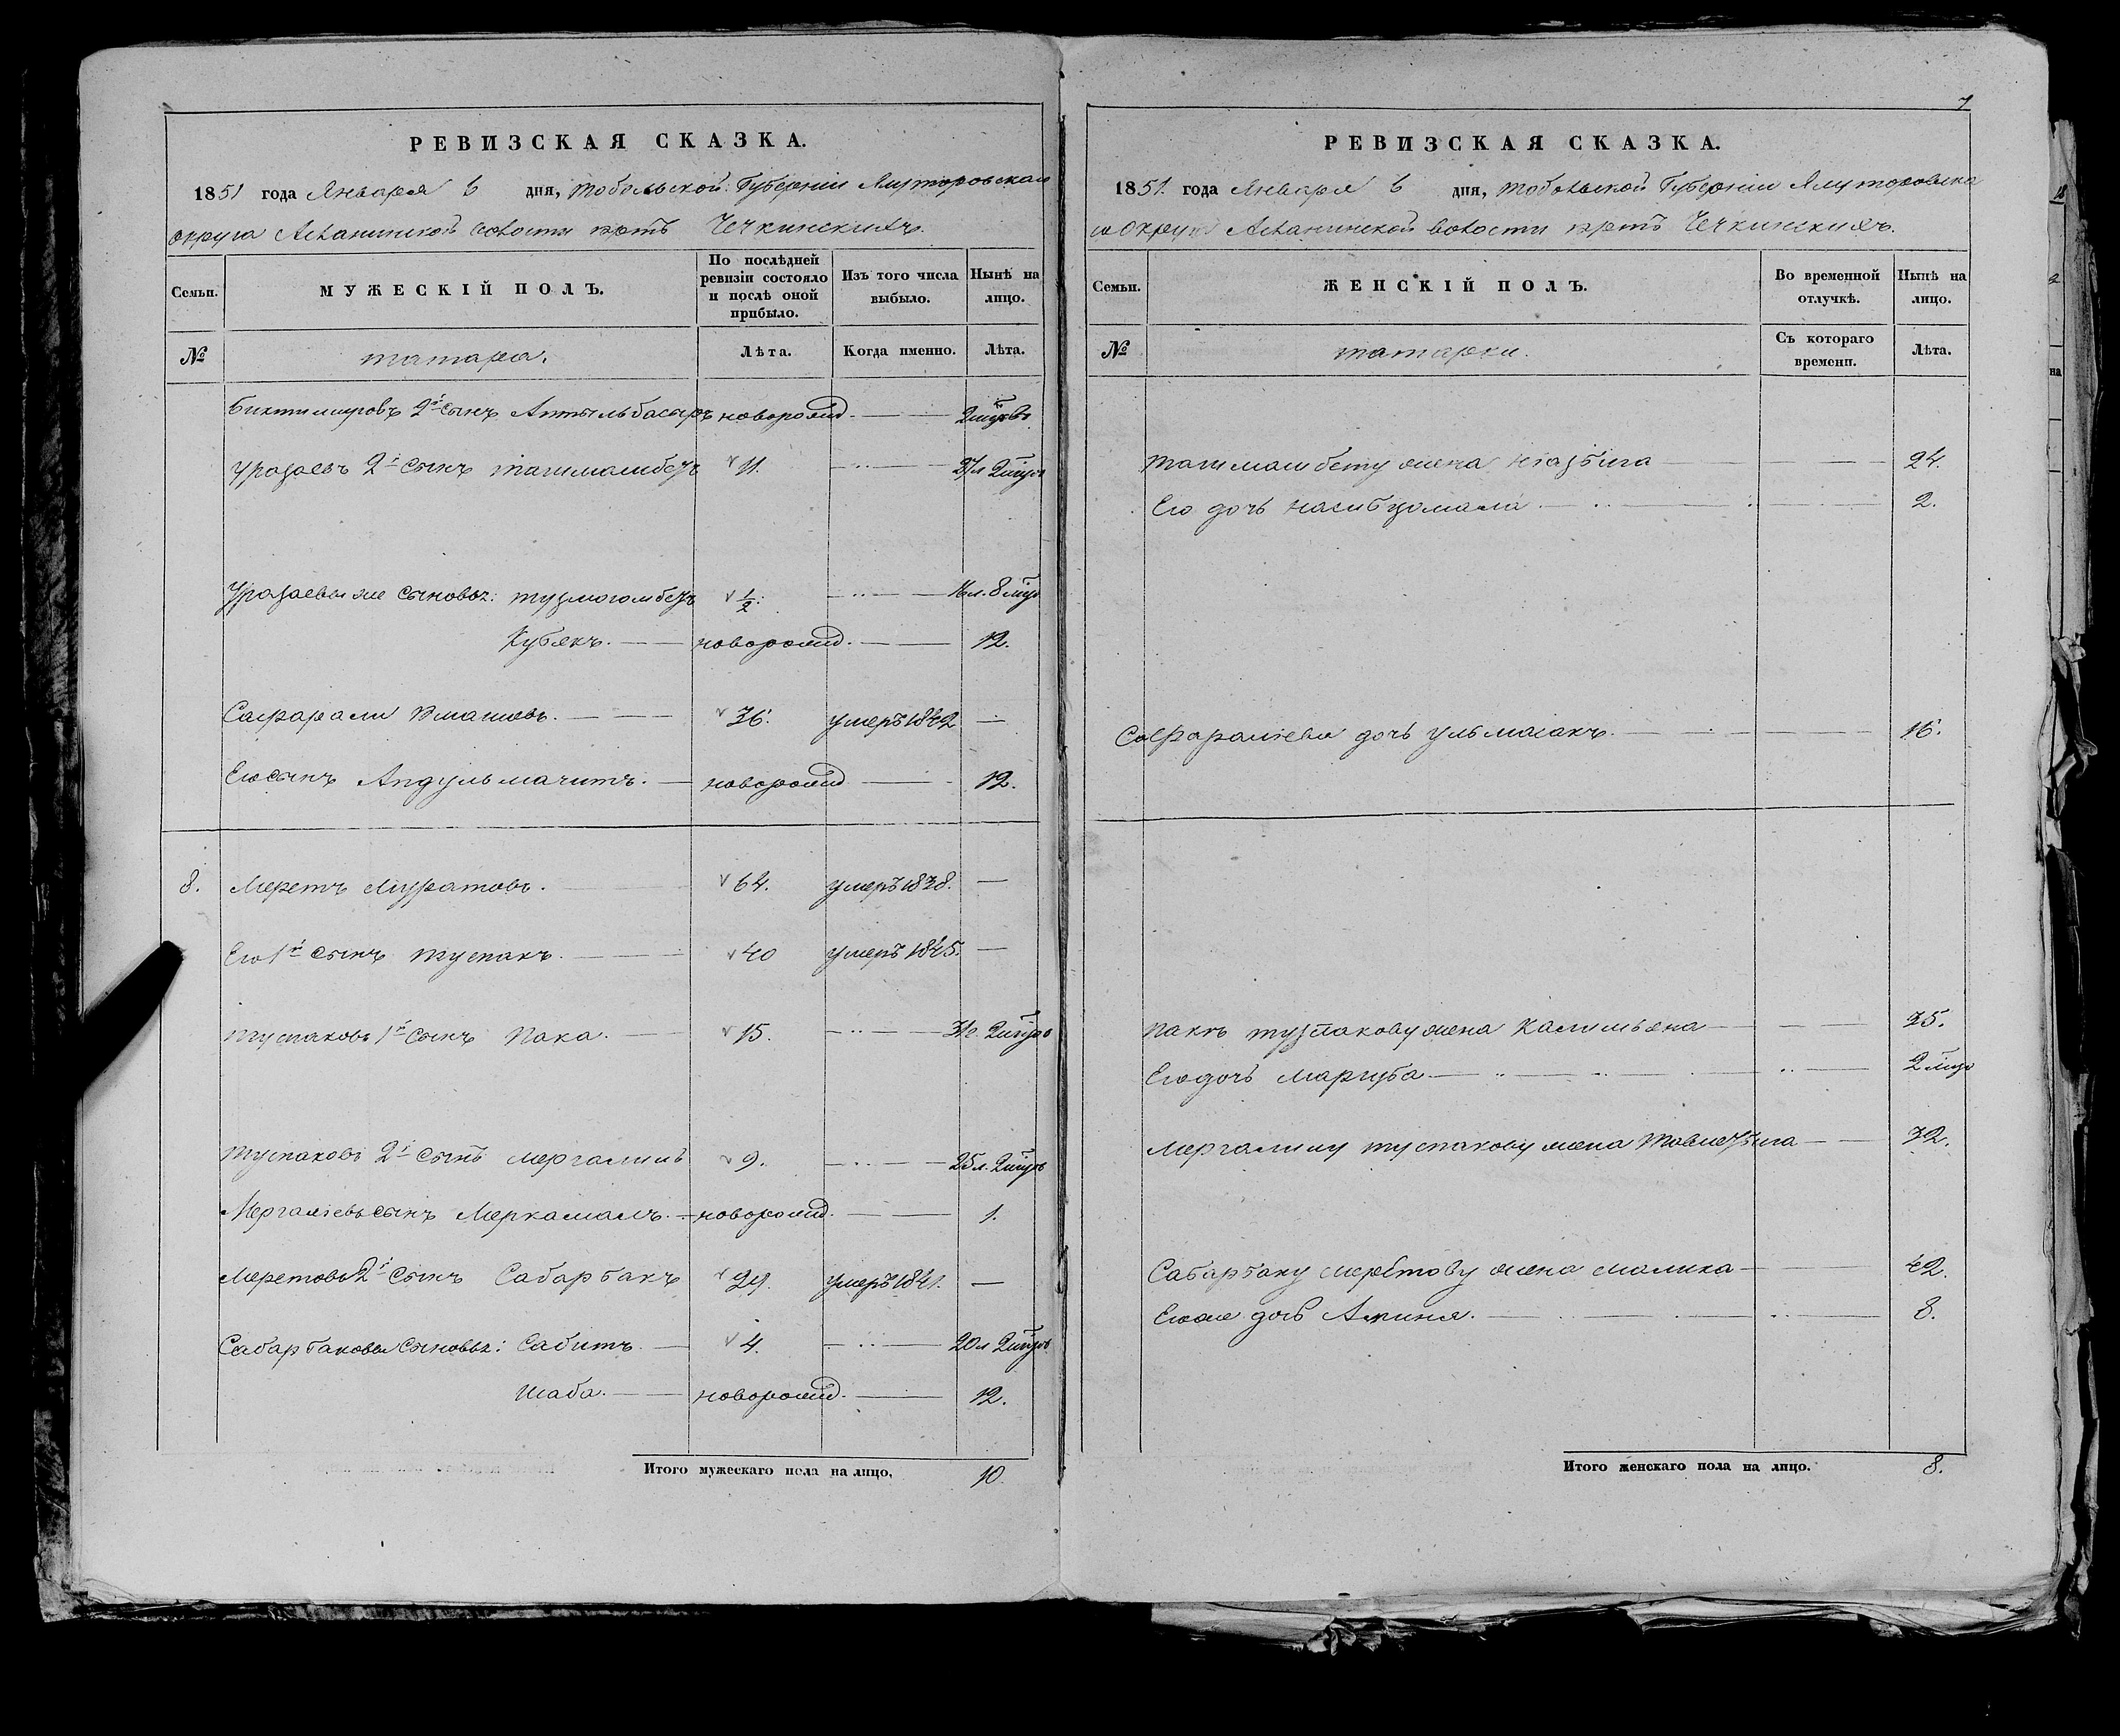 РЕВИЗСКАЯ СКАЗКА.
1851 года Января 6 дня, Тобольской Губерніи Ялуторовскаго
округа Асланинской волости юртъ Чечкинскихъ.
Семьи. МУЖЕСКІЙ ПОЛЪ. По послѣдней ревизіи состояло и послѣ оной прибыло. Изъ того числа выбыло. Нынѣ на лицо.
№ татара. Лѣта. Когда именно. Лѣта.
Биктимировъ 2й сынъ новорожд.
Уразаевъ 2й сынъ ташмамбетъ 11.
Уразаевы же сыновья: тузмогомбетъ ½.
Кубякъ. новорожд. 12.
Сафарали 36. умеръ 1842 —
Его сынъ Апдульмачитъ. новорожд. 12.
8. Меретъ Муратовъ. 64. умеръ 1838. —
Его 1й сынъ туспакъ. 40 умеръ 1845. —
туспаковъ 1й сынъ Пака. 15.
туспаковъ 2й сынъ мергалимъ 9.
Мергаліевъ сынъ Меркамалъ. новорожд. 1.
Меретовъ 2й сынъ Сабарбакъ 29. умеръ 1841. —
Сабарбаковы сыновья: Сабитъ. 4.
Шаба. новорожд. 12.
Итого мужескаго пола на лицо, 10
7
РЕВИЗСКАЯ СКАЗКА.
1851. года Января 6 дня, Тобольской Губерніи Ялуторовска
го Округа Асланинской волости юртъ Чечкинскихъ.
Семьи. ЖЕНСКІЙ ПОЛЪ. Во временной отлучкѣ. Нынѣ на лицо.
№ татарки. Съ котораго времени. Лѣта.
ташмамбету жена 24.
Его дочь насибцомала 2.
Сафараліева дочь ульмасакъ. 16.
Пакѣ туспакову жена Калимьяна 35.
Его дочь Маргуба
Мергалиму туспакову жена 32.
Сабарбаку меретову жена малика 42.
Его же дочь Амина. 8.
Итого женскаго пола на лицо. 8.